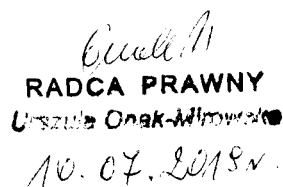 RADCA PRAWNY
Urszula Onak-Mirowska
10. 07. 2019 r.